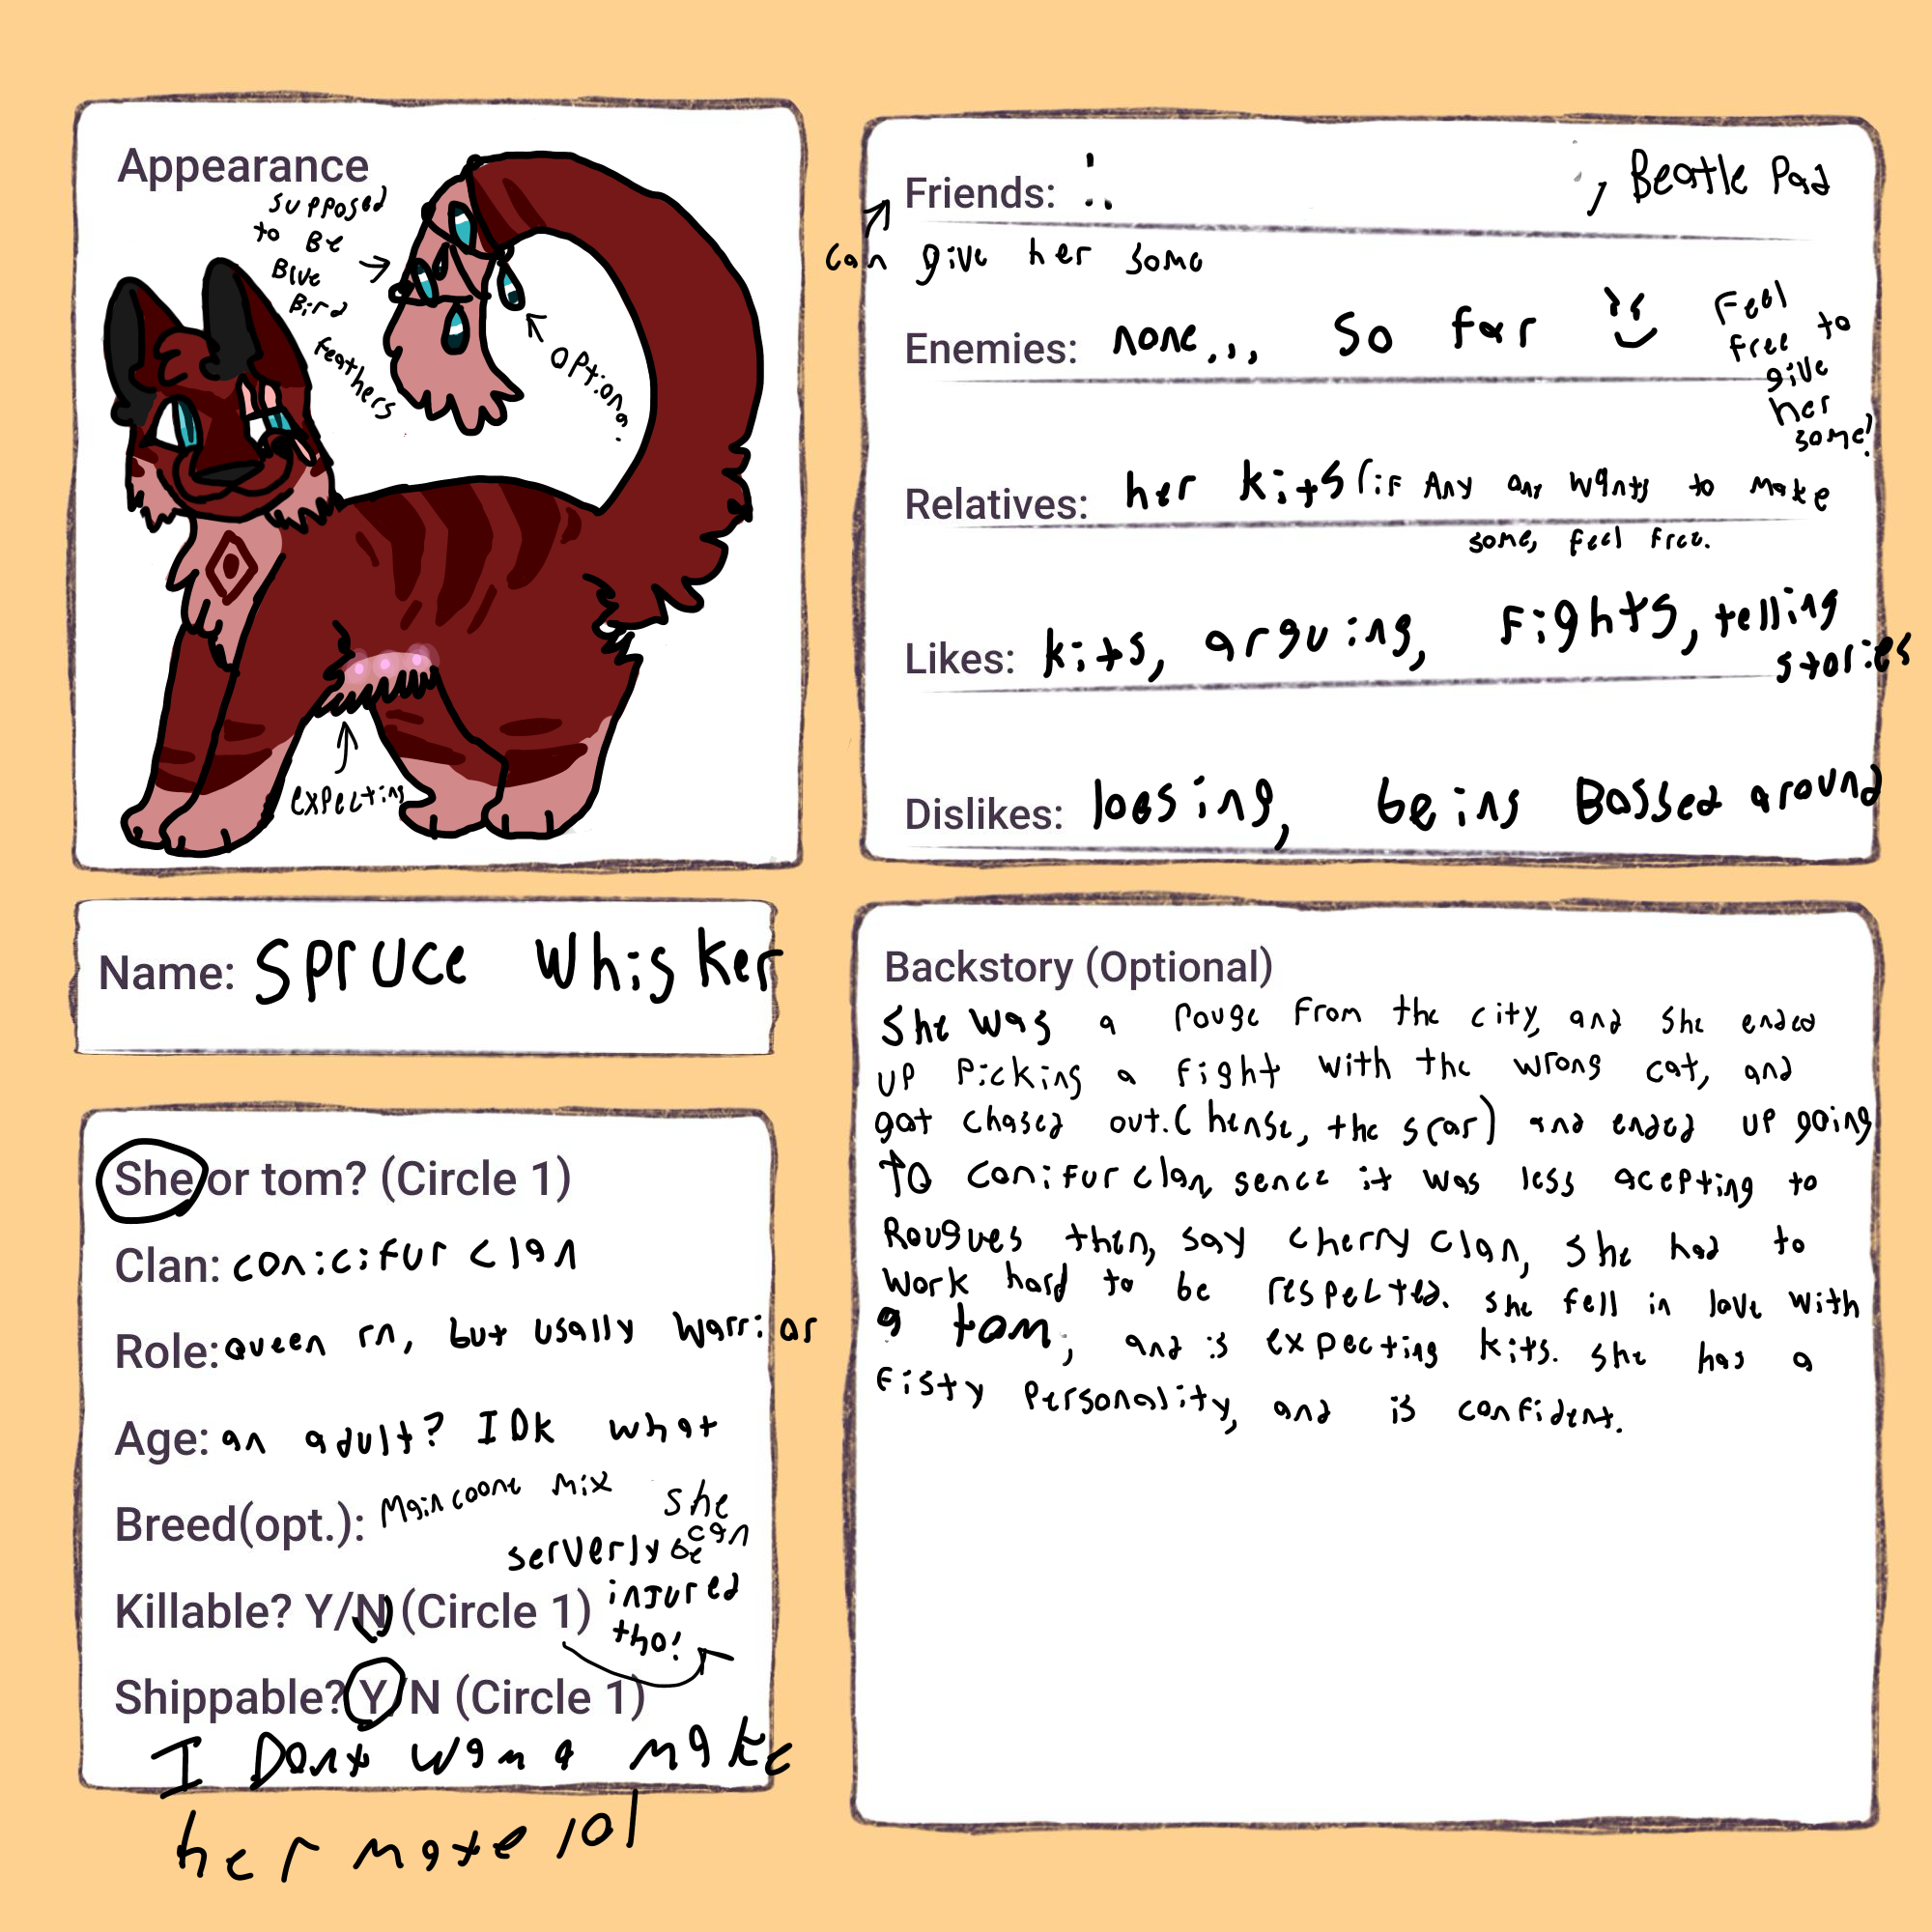 Appearance
supposed
to Be
Blue
Bird
feathers
optional
expecting
Name: Spruce Whisker
She or tom? (Circle 1)
Clan: conicifur clan
Role: Queen rn, but usally warrior
Age: an adult? IDK what
Breed(opt.): Maincoone mix
she
can
serverly be
injured
tho!
Killable? Y/N (Circle 1)
Shippable? Y/N (Circle 1)
I Dont wana make
her mate lol
Friends: , Beatle Pad
can give her some
Enemies: none... so far
Feel
free to
give
her
some!
Relatives: her kits (if Any any wants to make
some, feel free.
Likes: kits, arguing, Fights, telling
stories
Dislikes: loosing, being Bossed around
Backstory (Optional)
She was a rouge from the city, and she ended
up picking a fight with the wrong cat, and
got chased out. (hense, the scar) and ended up going
TO conifur clan, sence it was less acepting to
Rougues then, say cherry clan, she had to
work hard to be respected. she fell in love with
a tom, and is expecting kits. she has a
Fisty personality, and is confident.